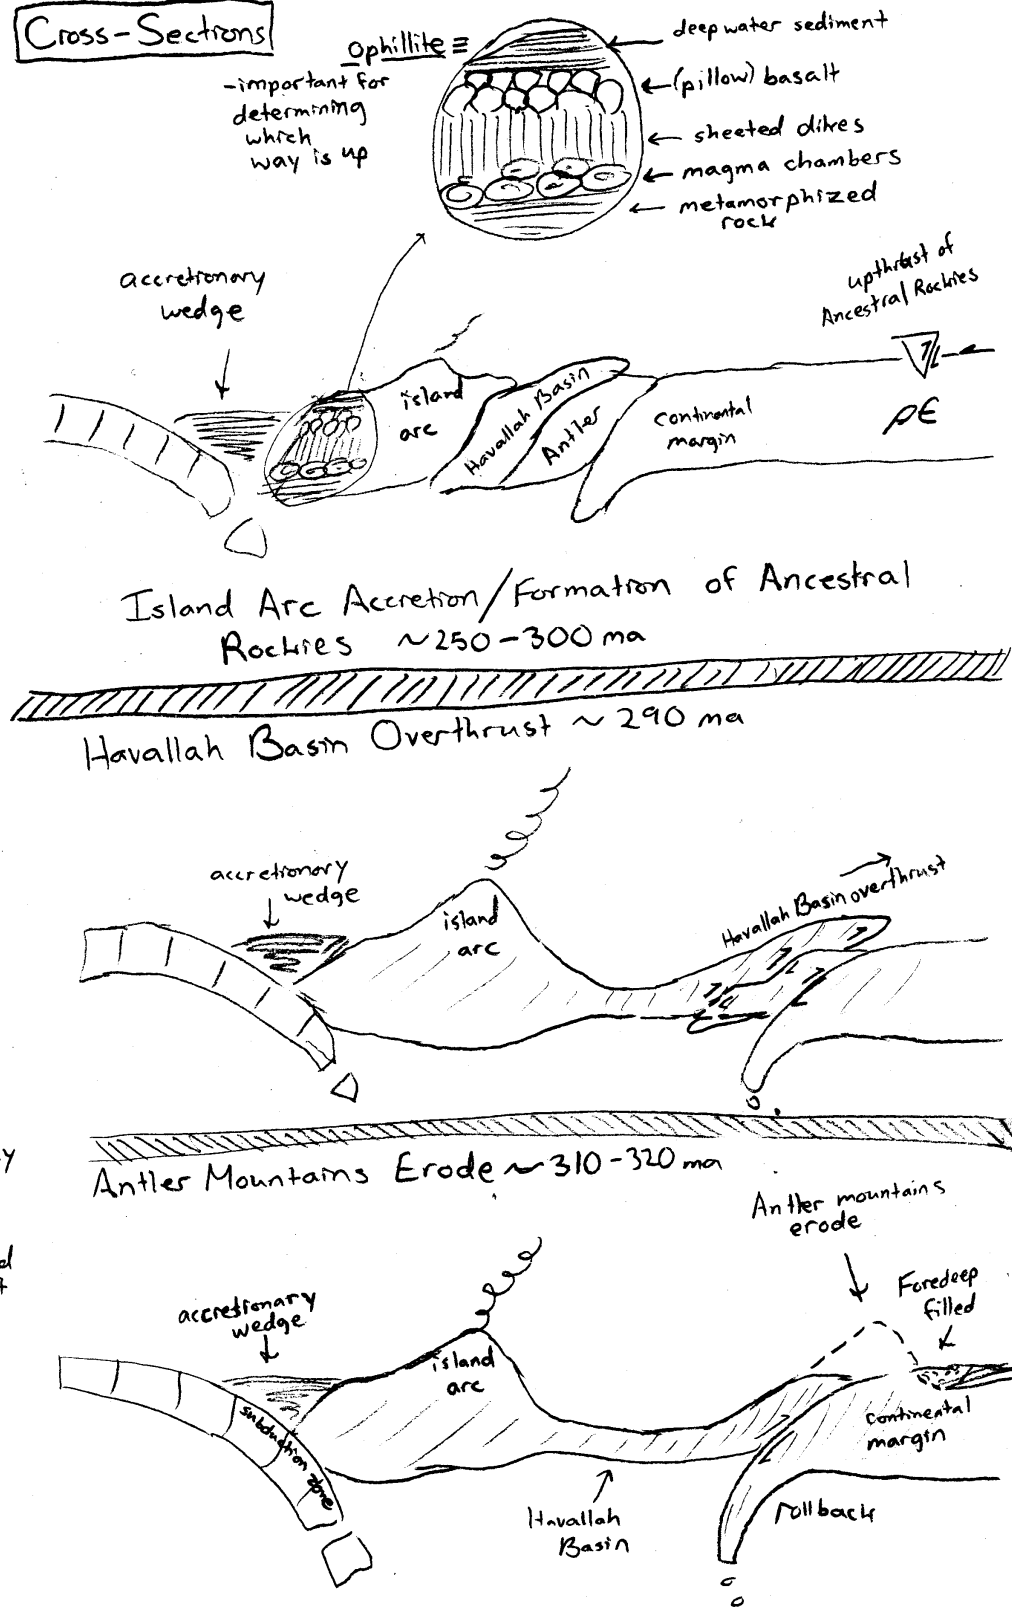 Cross-Sections
ophillite ≡
-important for
determining
which
way is up
deep water sediment
(pillow) basalt
sheeted dikes
magma chambers
metamorphized
rock
accretionary
wedge
upthrust of
Ancestral Rockies
island
arc
Havallah Basin
Antler
continental
margin
p€
Island Arc Accretion/Formation of Ancestral
Rockies ~250-300 ma
Havallah Basin Overthrust ~ 290 ma
accretionary
wedge
island
arc
Havallah Basin overthrust
Antler Mountains Erode ~310-320 ma
Antler mountains
erode
Foredeep
filled
accretionary
wedge
island
arc
subduction zone
continental
margin
Havallah
Basin
rollback